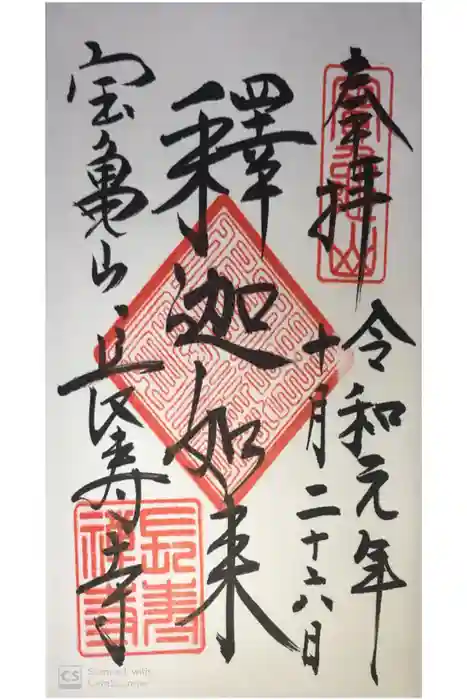 奉拝
令和元年
十月二十六日
釋迦如来
宝亀山
長寿寺
宝亀山
長壽禅寺
CS Scanned with
CamScanner